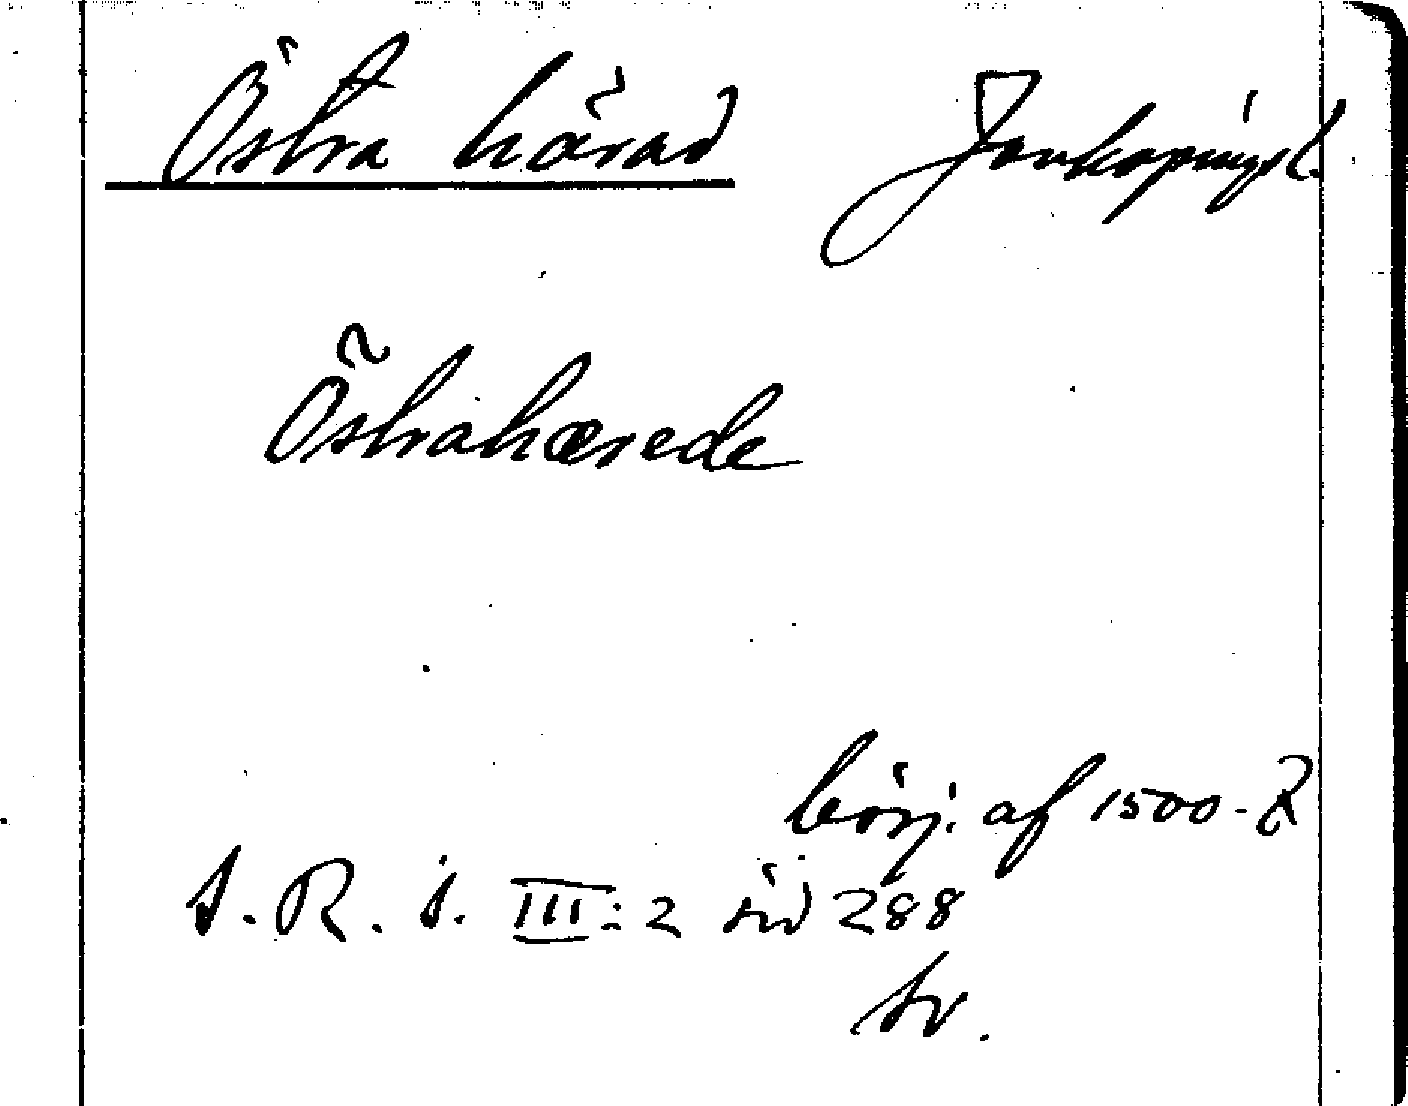 Östra härad Jönköpings l.
Östrahærede
börj. af 1500-t
S. R. S. III:2 sid 288
tr.